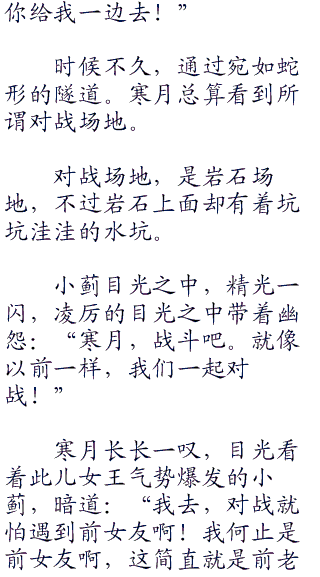 你给我一边去！”
时候不久，通过宛如蛇
形的隧道。寒月总算看到所
谓对战场地。
对战场地，是岩石场
地，不过岩石上面却有着坑
坑洼洼的水坑。
小蓟目光之中，精光一
闪，凌厉的目光之中带着幽
怨：“寒月，战斗吧。就像
以前一样，我们一起对
战！”
寒月长长一叹，目光看
着此儿女王气势爆发的小
蓟，暗道：“我去，对战就
怕遇到前女友啊！我何止是
前女友啊，这简直就是前老